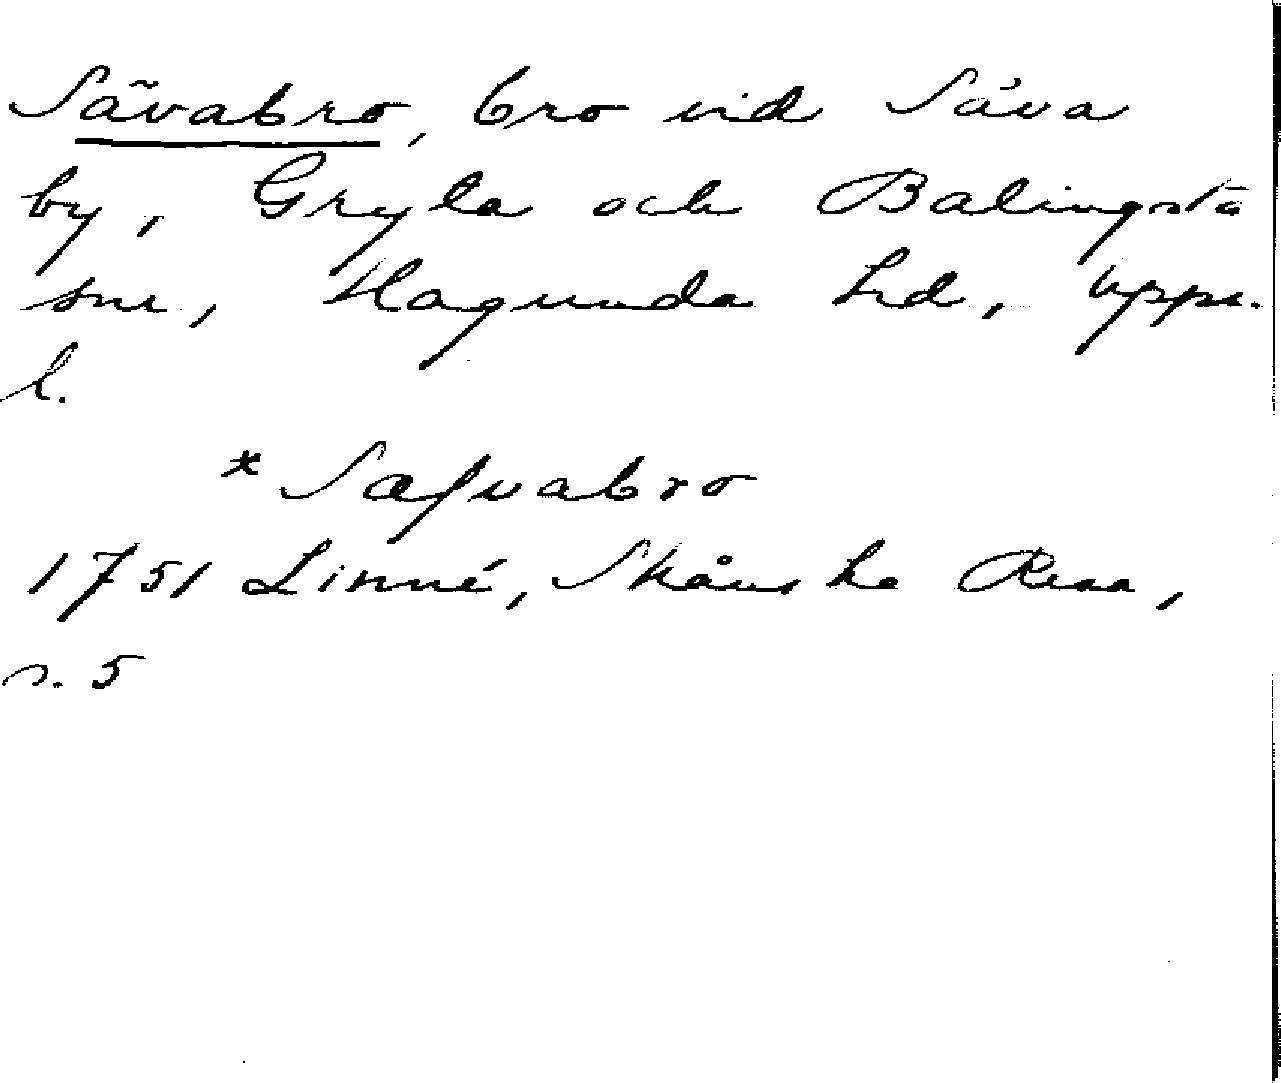 Sävabro, bro vid Säva
by, Gryta och Balingsta
snr, Hagunda hd, Upps.
l.
* Safvabro
1751 Linné, Skånska Resa,
s. 5